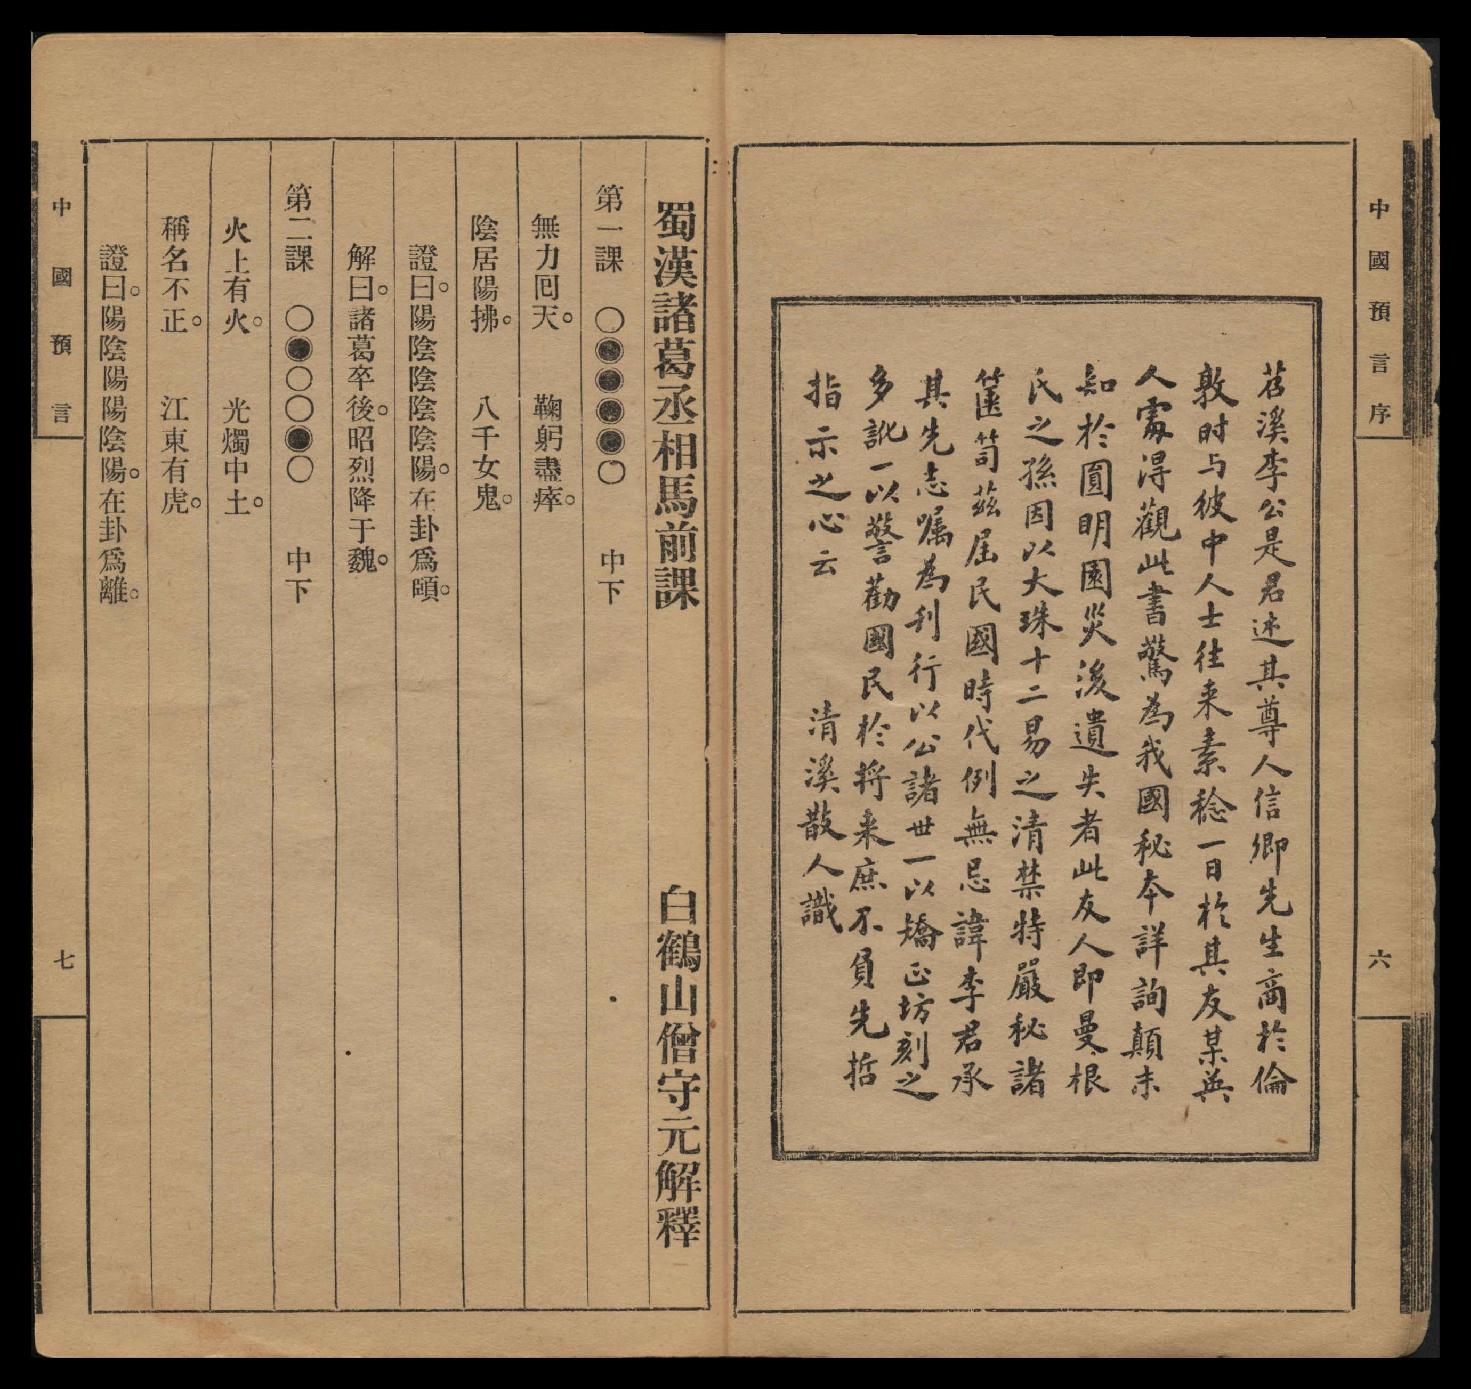 中國預言序
六
苕溪李公是君述其尊人信卿先生商於倫
敦时与彼中人士往来素稔一日於其友某英
人處得觀此書驚為我國秘本詳詢顛末
知於圓明園災後遺失者此友人即曼根
氏之孫因以大珠十二易之清禁特嚴秘諸
篋笥茲届民國時代例無忌諱李君承
其先志嘱為刋行以公諸世一以矯正坊刻之
多訛一以警勸國民於将来庶不負先哲
指示之心云
清溪散人識
蜀漢諸葛丞相馬前課　白鶴山僧守元解釋
第一課　○●●●●○　中下
無力囘天。　鞠躬盡瘁。
陰居陽拂。　八千女鬼。
證曰。陽陰陰陰陰陽。在卦爲頤。
解曰。諸葛卒後。昭烈降于魏。
第二課　○●○○●○　中下
火上有火。　光燭中土。
稱名不正。　江東有虎。
證曰。陽陰陽陽陰陽。在卦爲離。
中國預言
七